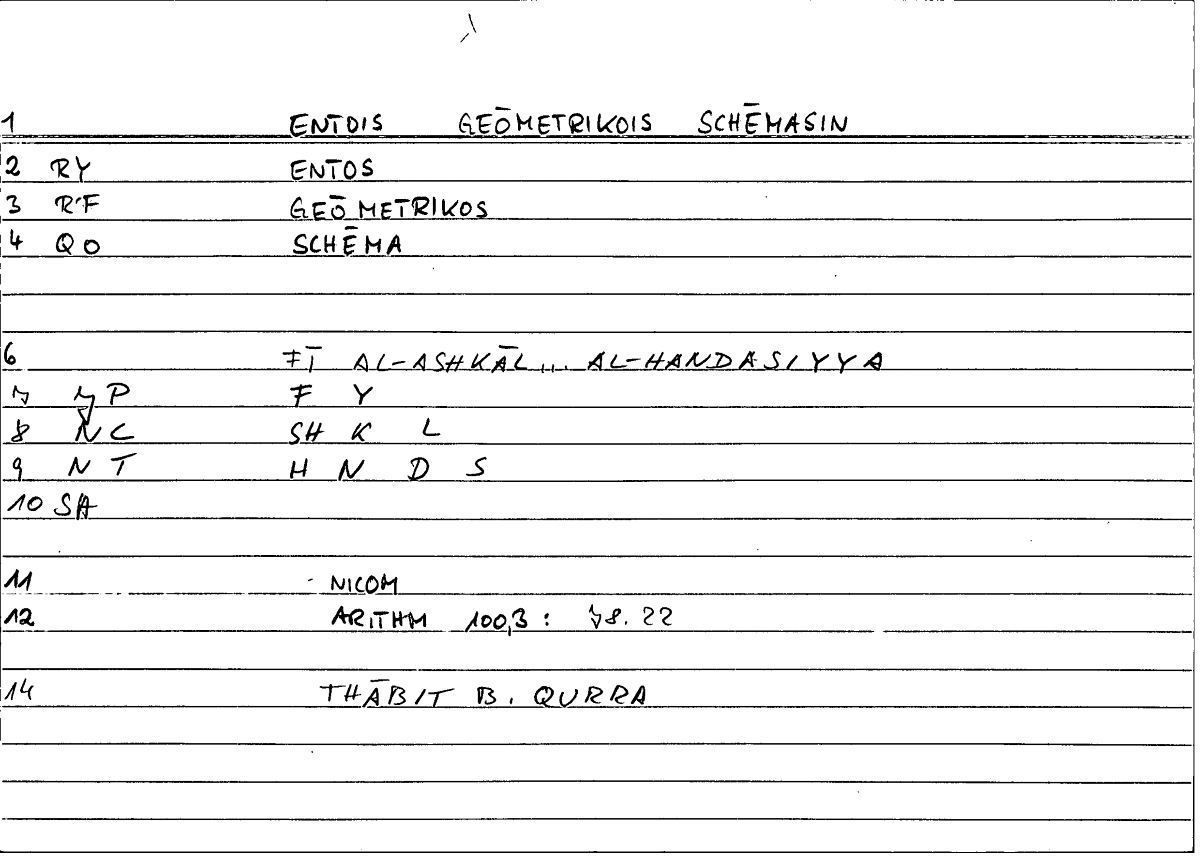 1 ENTOIS GEŌMETRIKOIS SCHĒMASIN
2 RY ENTOS
3 RF GEŌMETRIKOS
4 QO SCHĒMA
6 FĪ AL-ASHKĀL... AL-HANDASIYYA
7 P F Y
8 NC SH K L
9 NT H N D S
10 SA
11 NICOM
12 ARITHM 100,3: 78.22
14 THĀBIT B. QURRA